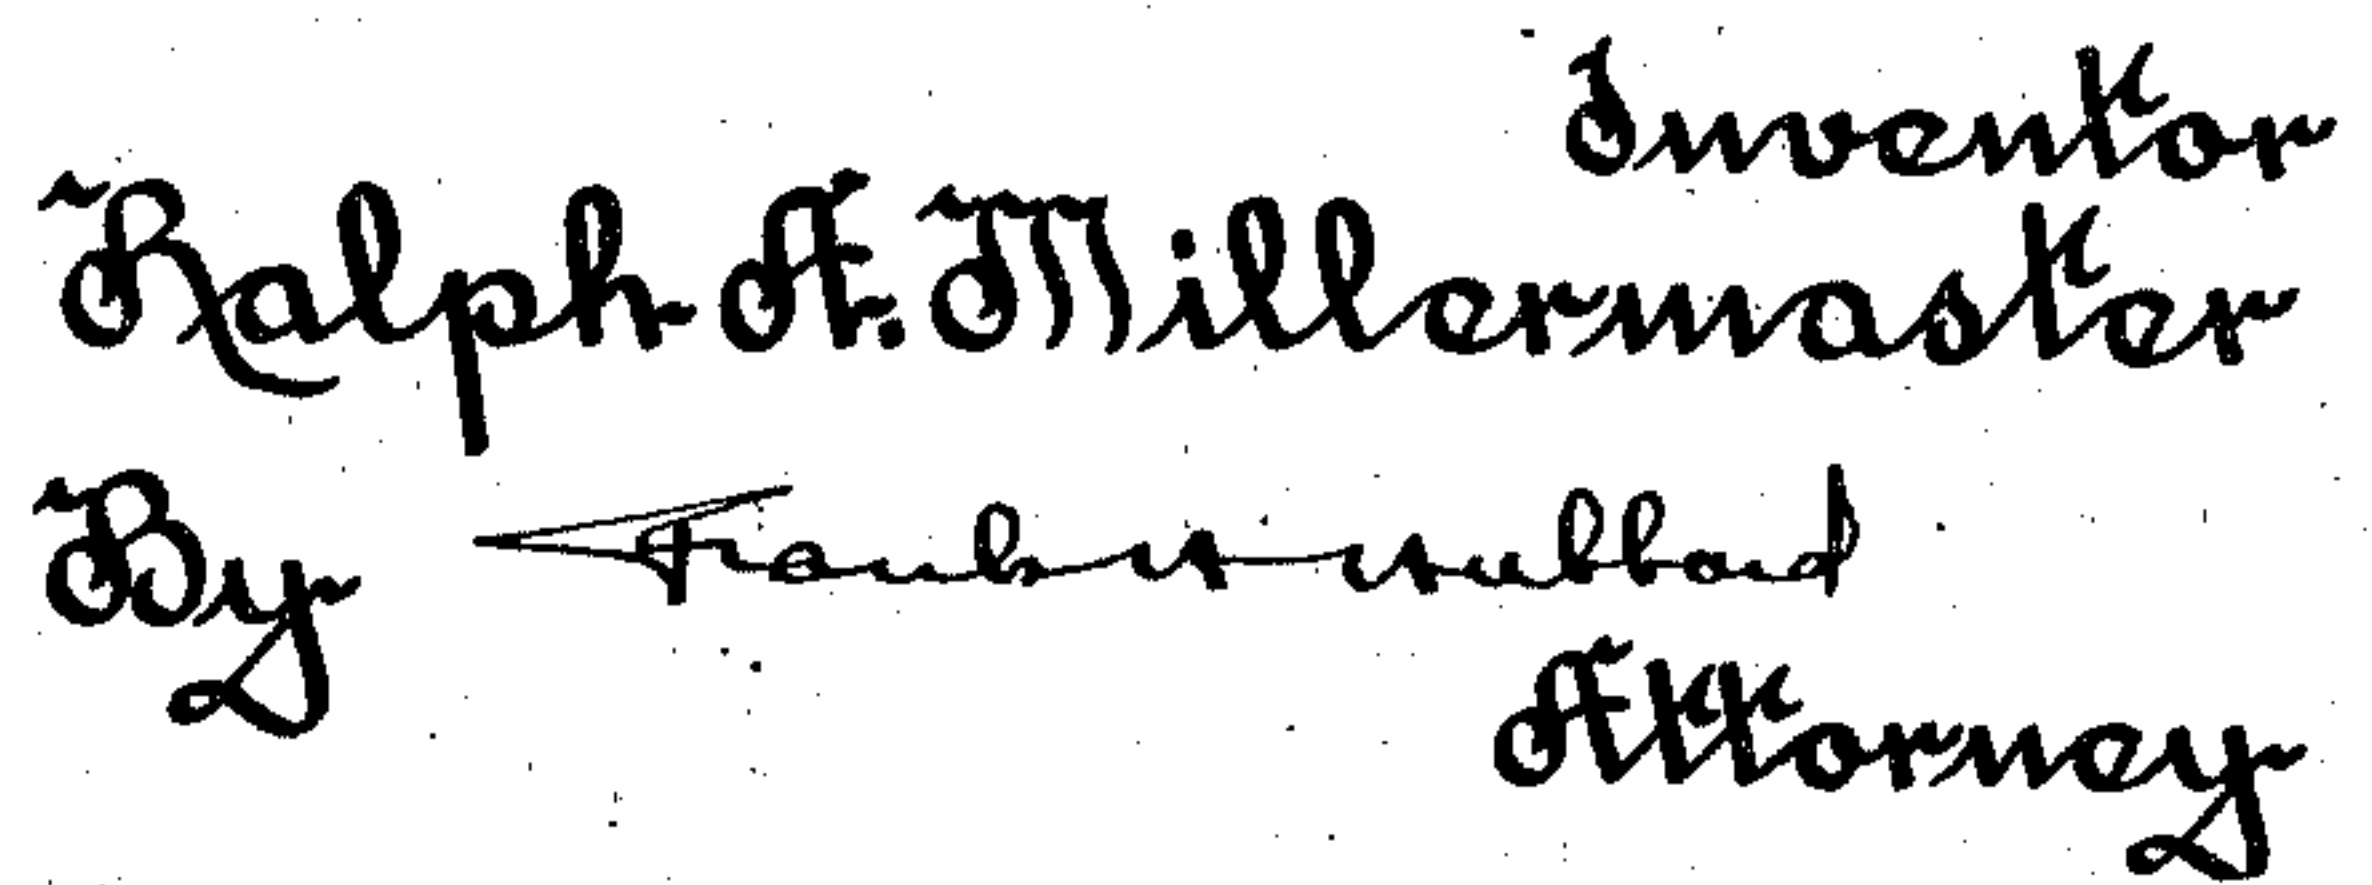 Inventor
Ralph A. Millermaster
By Frank H Hubbard
Attorney